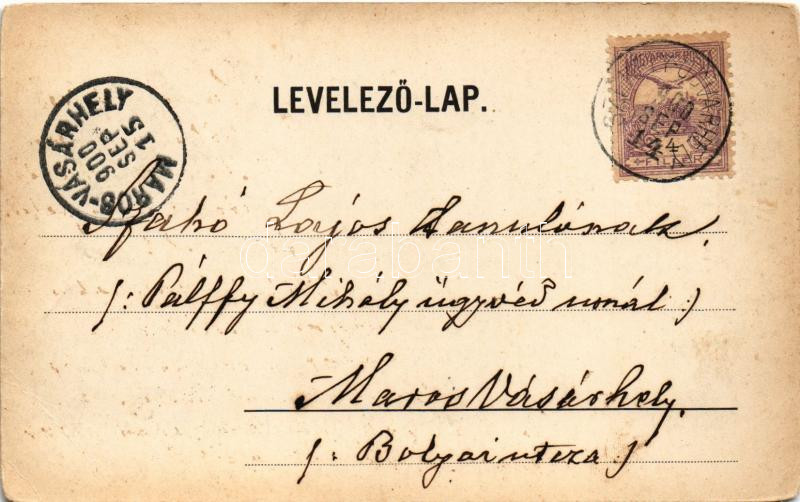 LEVELEZŐ-LAP.
MAROS-VÁSÁRHELY
900
SEP
15
Szabó Lajos tanulónak,
/: Pálffy Mihály ügyvéd urnál :/
Maros Vásárhely.
/: Bolyai utcza :/
darabanth